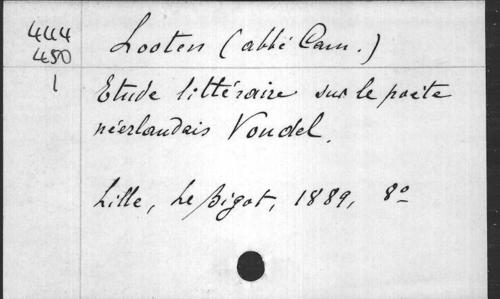 444
450
1
Looten (abbé Cam.)
Etude littéraire sur le poète
néerlandais Vondel.
Lille, Le Bigot, 1889, 8º